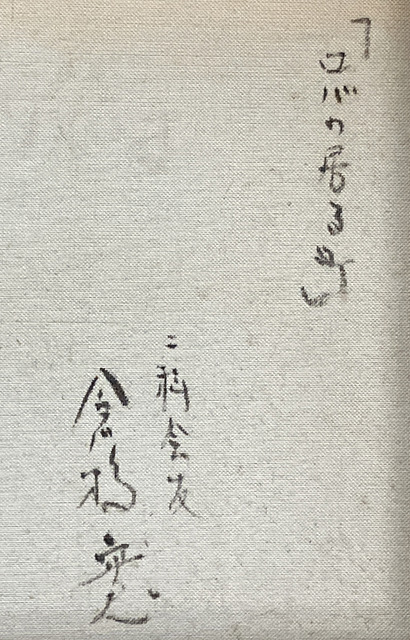 「ロバの居る町」
二科会友
倉橋